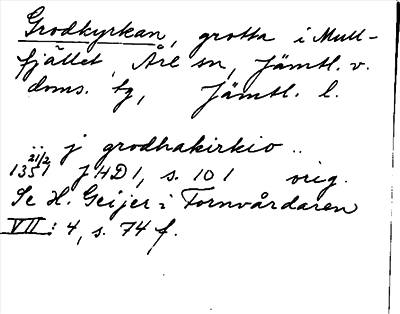 Grodkyrkan, grotta i Mull-
fjället, Åre sn, Jämtl. v.
doms. tg, Jämtl. l.
.. j grodhakirkio ..
1351 21/2 JHD 1, s. 101 orig.
Se H. Geijer i Fornvårdaren
VII: 4, s. 74 f.